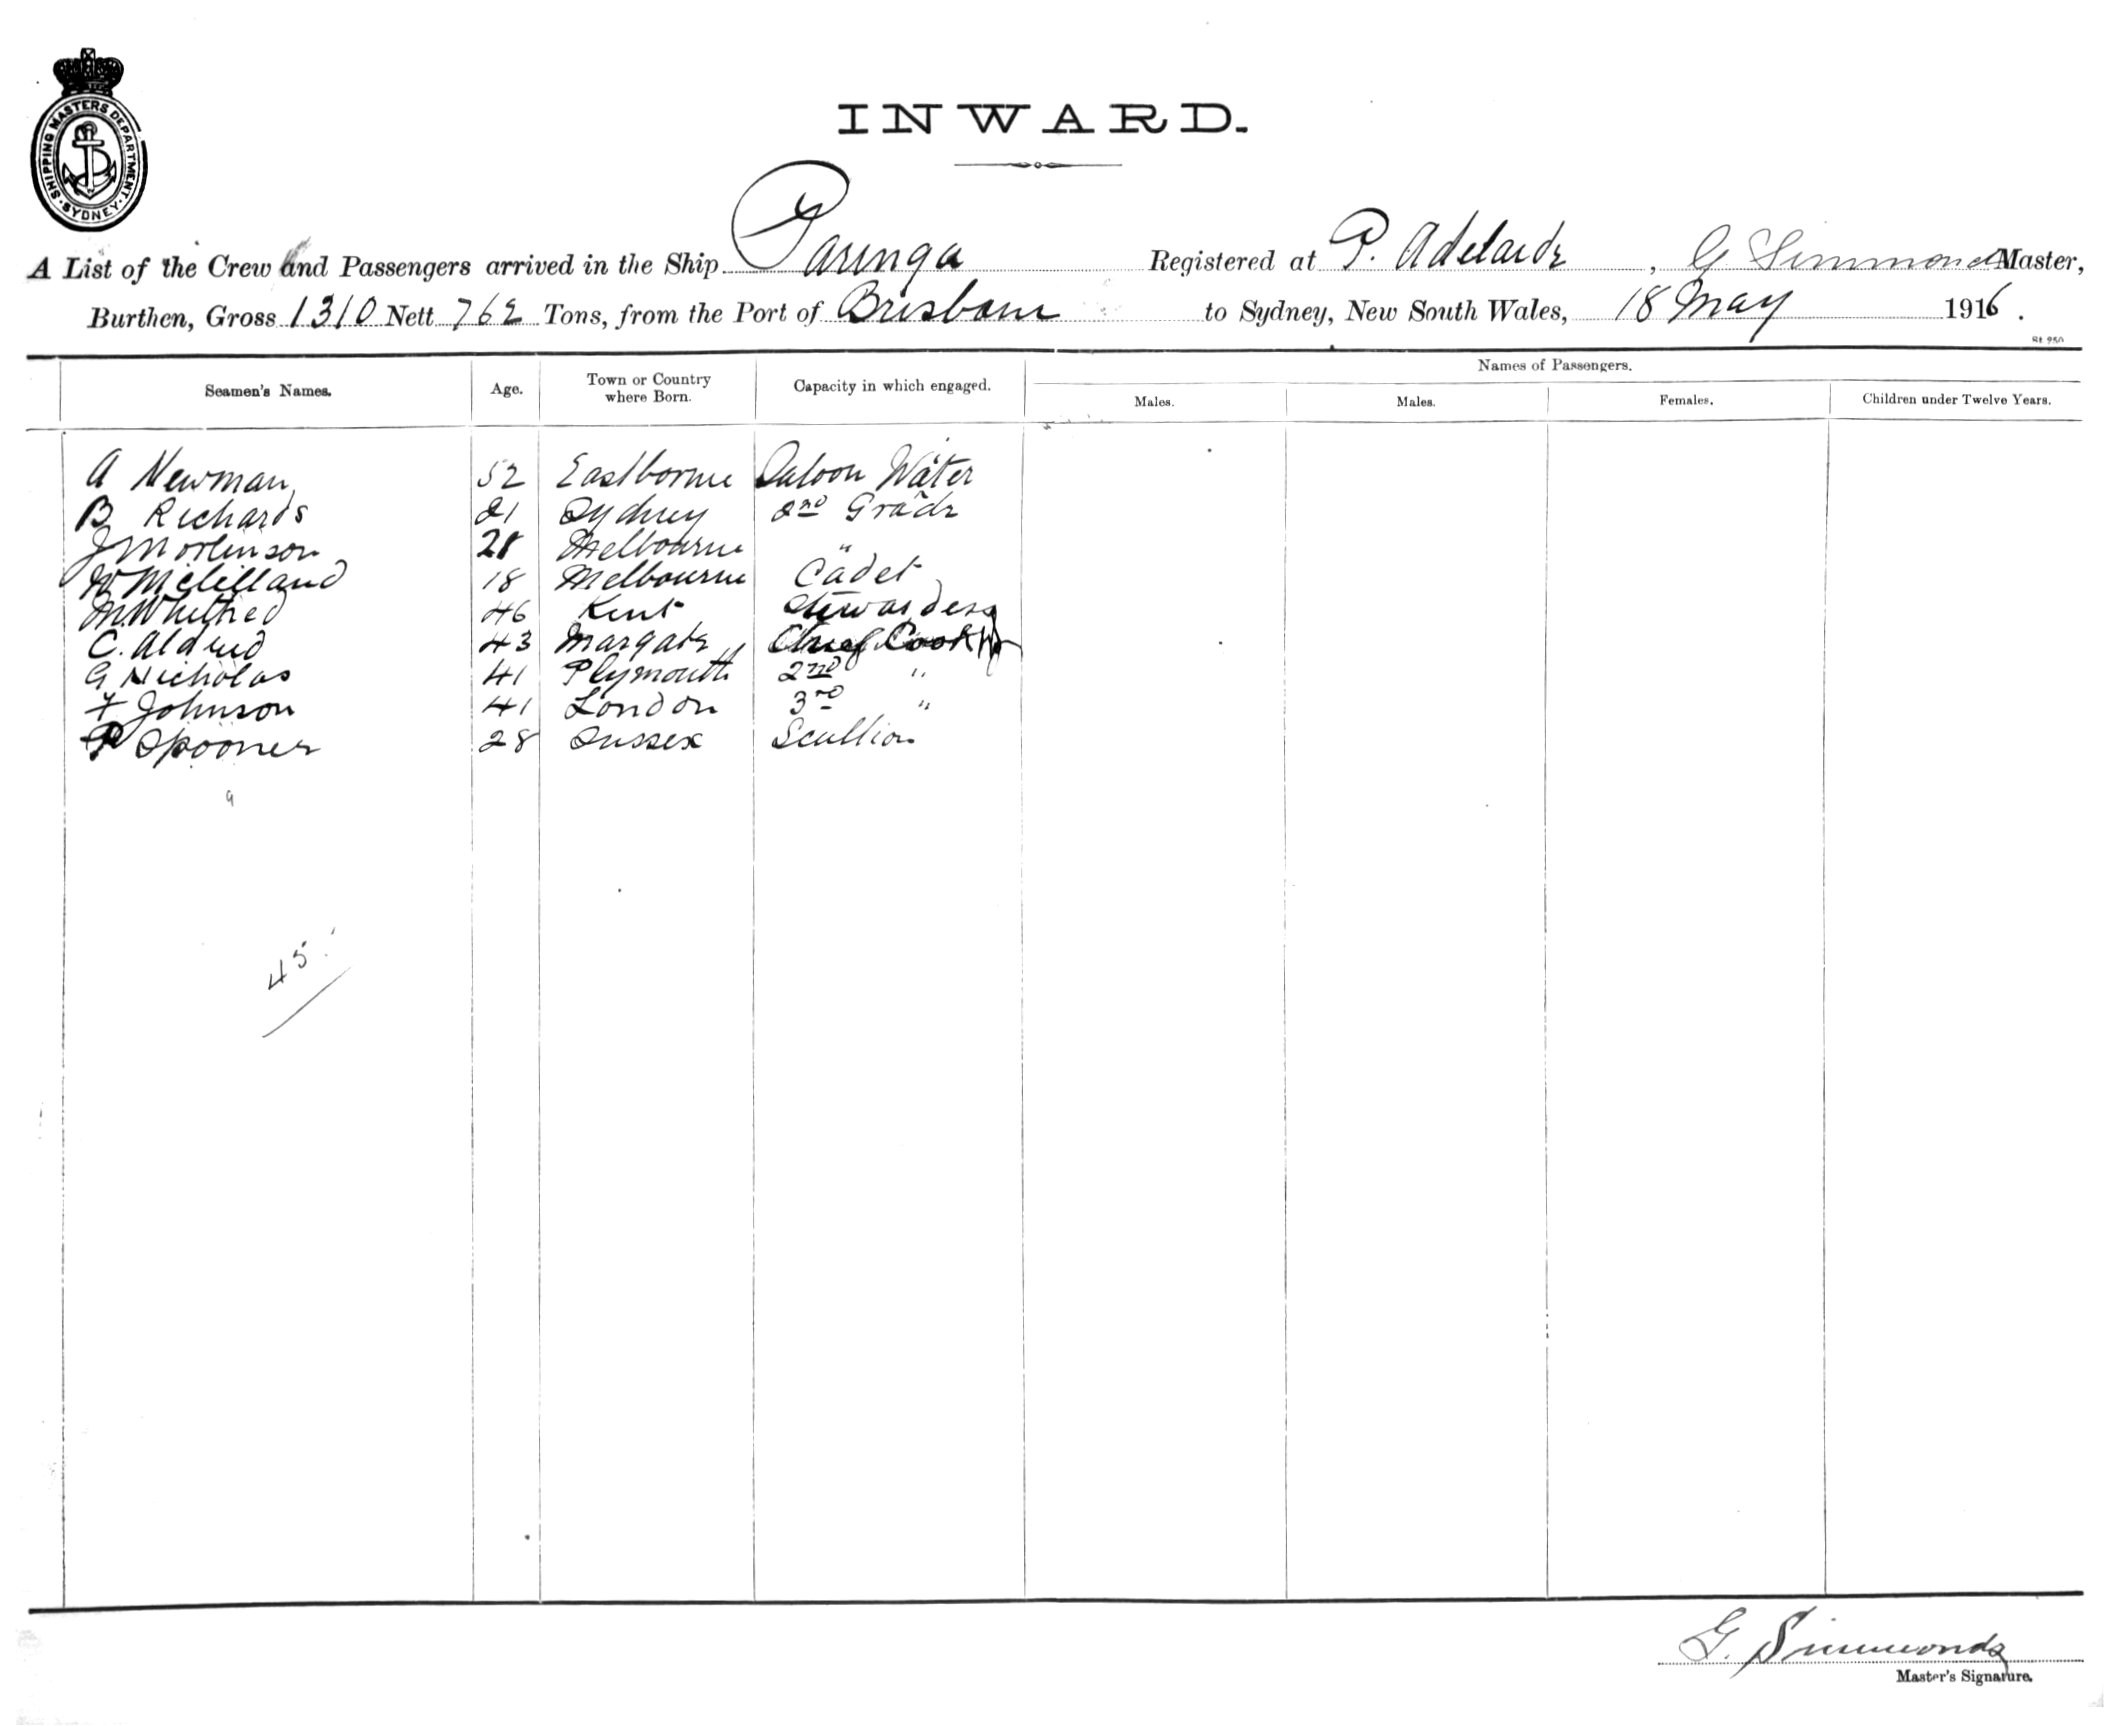 SHIPPING MASTERS DEPARTMENT. SYDNEY.
INWARD.
A List of the Crew and Passengers arrived in the Ship Paringa Registered at P. Adelaide, G Simmonds Master,
Burthen, Gross 1310 Nett 762 Tons, from the Port of Brisbane to Sydney, New South Wales, 18 May 1916.
St 950
Seamen's Names. Age. Town or Country where Born. Capacity in which engaged. Names of Passengers.
Males. Males. Females. Children under Twelve Years.
A Newman 52 Eastborne Saloon Water
B Richards 21 Sydney 2nd Grade
J Morlinson 28 Melbourne "
W McLelland 18 Melbourne Cadet
M. Whitred 46 Kent Stewardess
C. Aldred 43 Margate Chief Cook
G Nicholas 41 Plymouth 2nd "
F Johnson 41 London 3rd "
P Spooner 28 Sussex Scullion
9
45
G. Simmonds
Master's Signature.